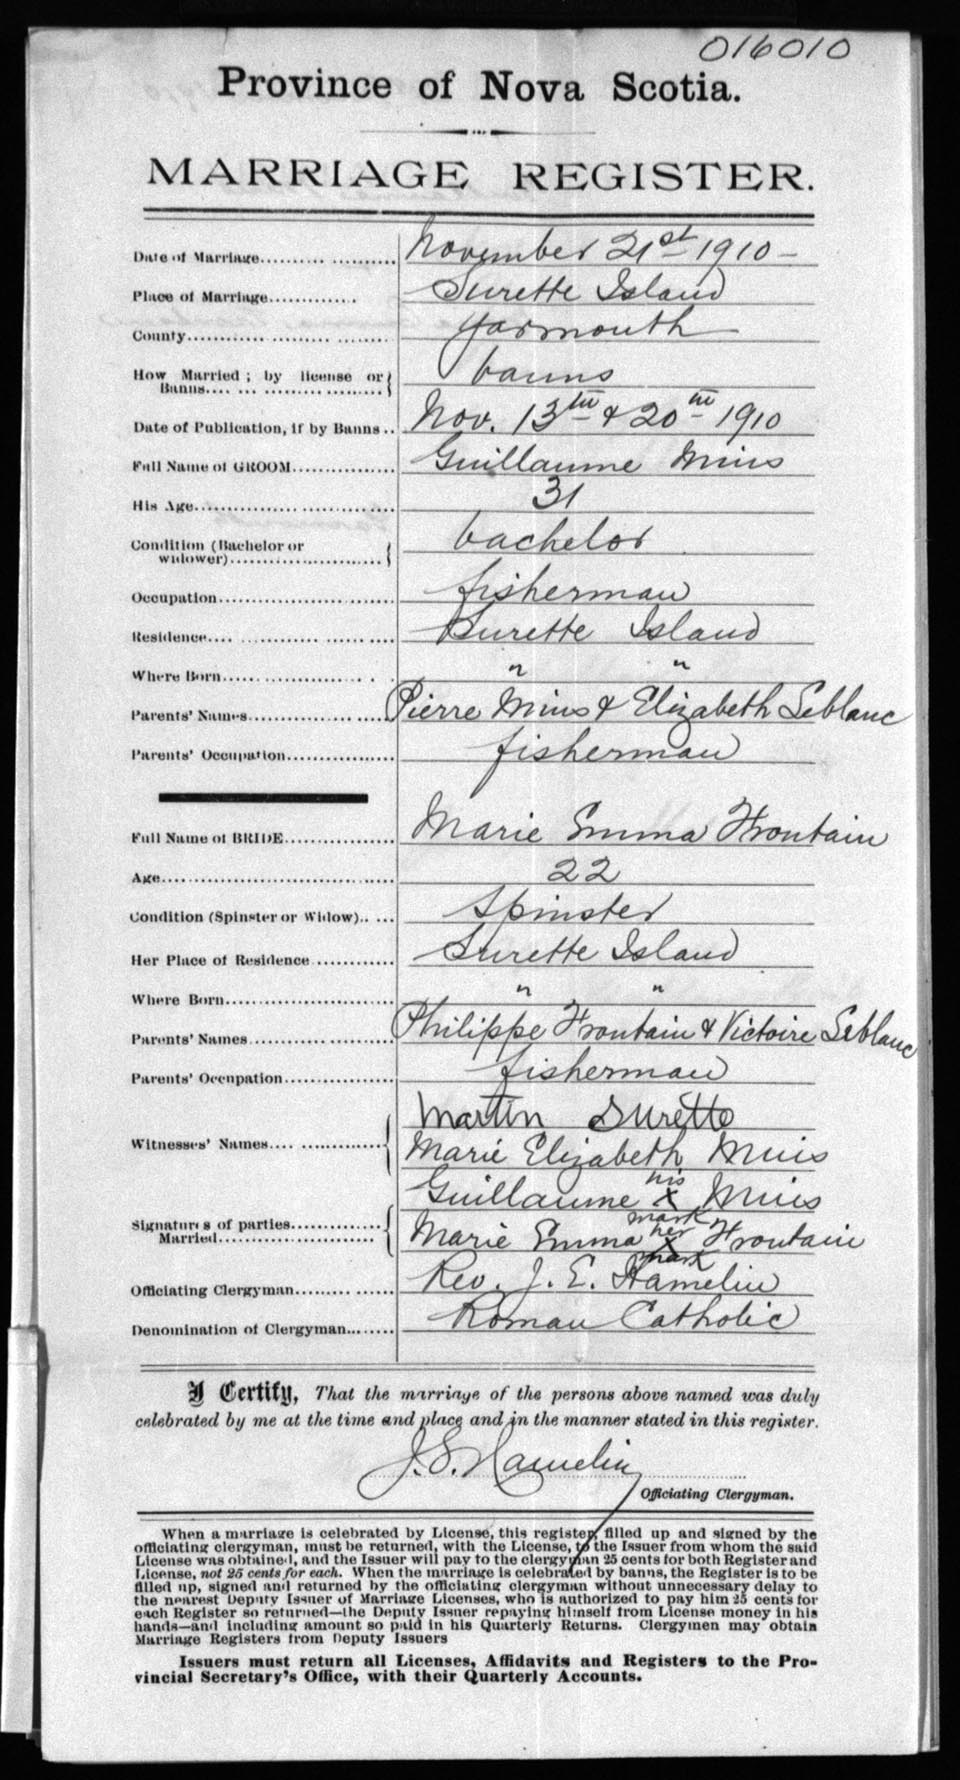 016010
Province of Nova Scotia.
MARRIAGE REGISTER.
Date of Marriage..................... November 21st 1910 -
Place of Marriage............. Surette Island
County.............................. Yarmouth
How Married ; by license or
Banns........................... banns
Date of Publication, if by Banns .. Nov. 13th & 20th 1910
Full Name of GROOM................ Guillaume Mius
His Age................................ 31
Condition (Bachelor or
widower)........................ bachelor
Occupation............................ fisherman
Residence.............................. Surette Island
Where Born.......................... " "
Parents' Names..................... Pierre Mius & Elizabeth Leblanc
Parents' Occupation................. fisherman
Full Name of BRIDE................ Marie Emma Frontain
Age.................................... 22
Condition (Spinster or Widow)..... Spinster
Her Place of Residence ............ Surette Island
Where Born......................... " "
Parents' Names..................... Philippe Frontain & Victoire Leblanc
Parents' Occupation................ fisherman
Witnesses' Names................. Martin Surette
Marie Elizabeth Muis
Signatures of parties............... Guillaume his X mark Muis
Married....................... Marie Emma her X mark Frontain
Officiating Clergyman............. Rev. J. E. Hamelin
Denomination of Clergyman......... Roman Catholic
I Certify, That the marriage of the persons above named was duly
celebrated by me at the time and place and in the manner stated in this register.
J. E. Hamelin
Officiating Clergyman.
When a marriage is celebrated by License, this register, filled up and signed by the
officiating clergyman, must be returned, with the License, to the Issuer from whom the said
License was obtained, and the Issuer will pay to the clergyman 25 cents for both Register and
License, not 25 cents for each. When the marriage is celebrated by banns, the Register is to be
filled up, signed and returned by the officiating clergyman without unnecessary delay to
the nearest Deputy Issuer of Marriage Licenses, who is authorized to pay him 25 cents for
each Register so returned—the Deputy Issuer repaying himself from License money in his
hands—and including amount so paid in his Quarterly Returns. Clergymen may obtain
Marriage Registers from Deputy Issuers
Issuers must return all Licenses, Affidavits and Registers to the Pro-
vincial Secretary's Office, with their Quarterly Accounts.